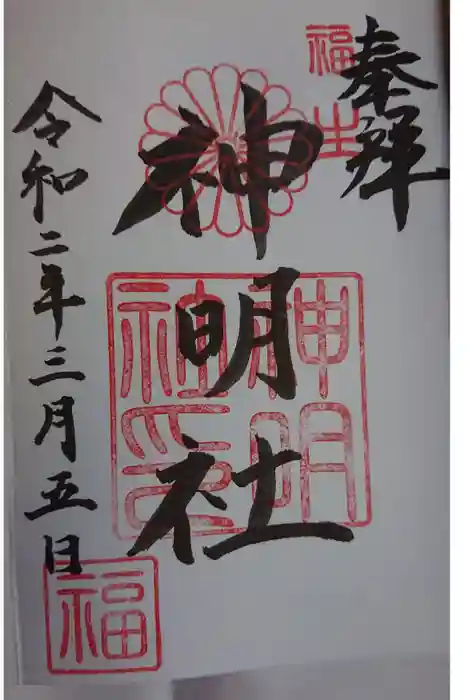 奉拝
福生
神明社
神明社印
令和二年三月五日
福